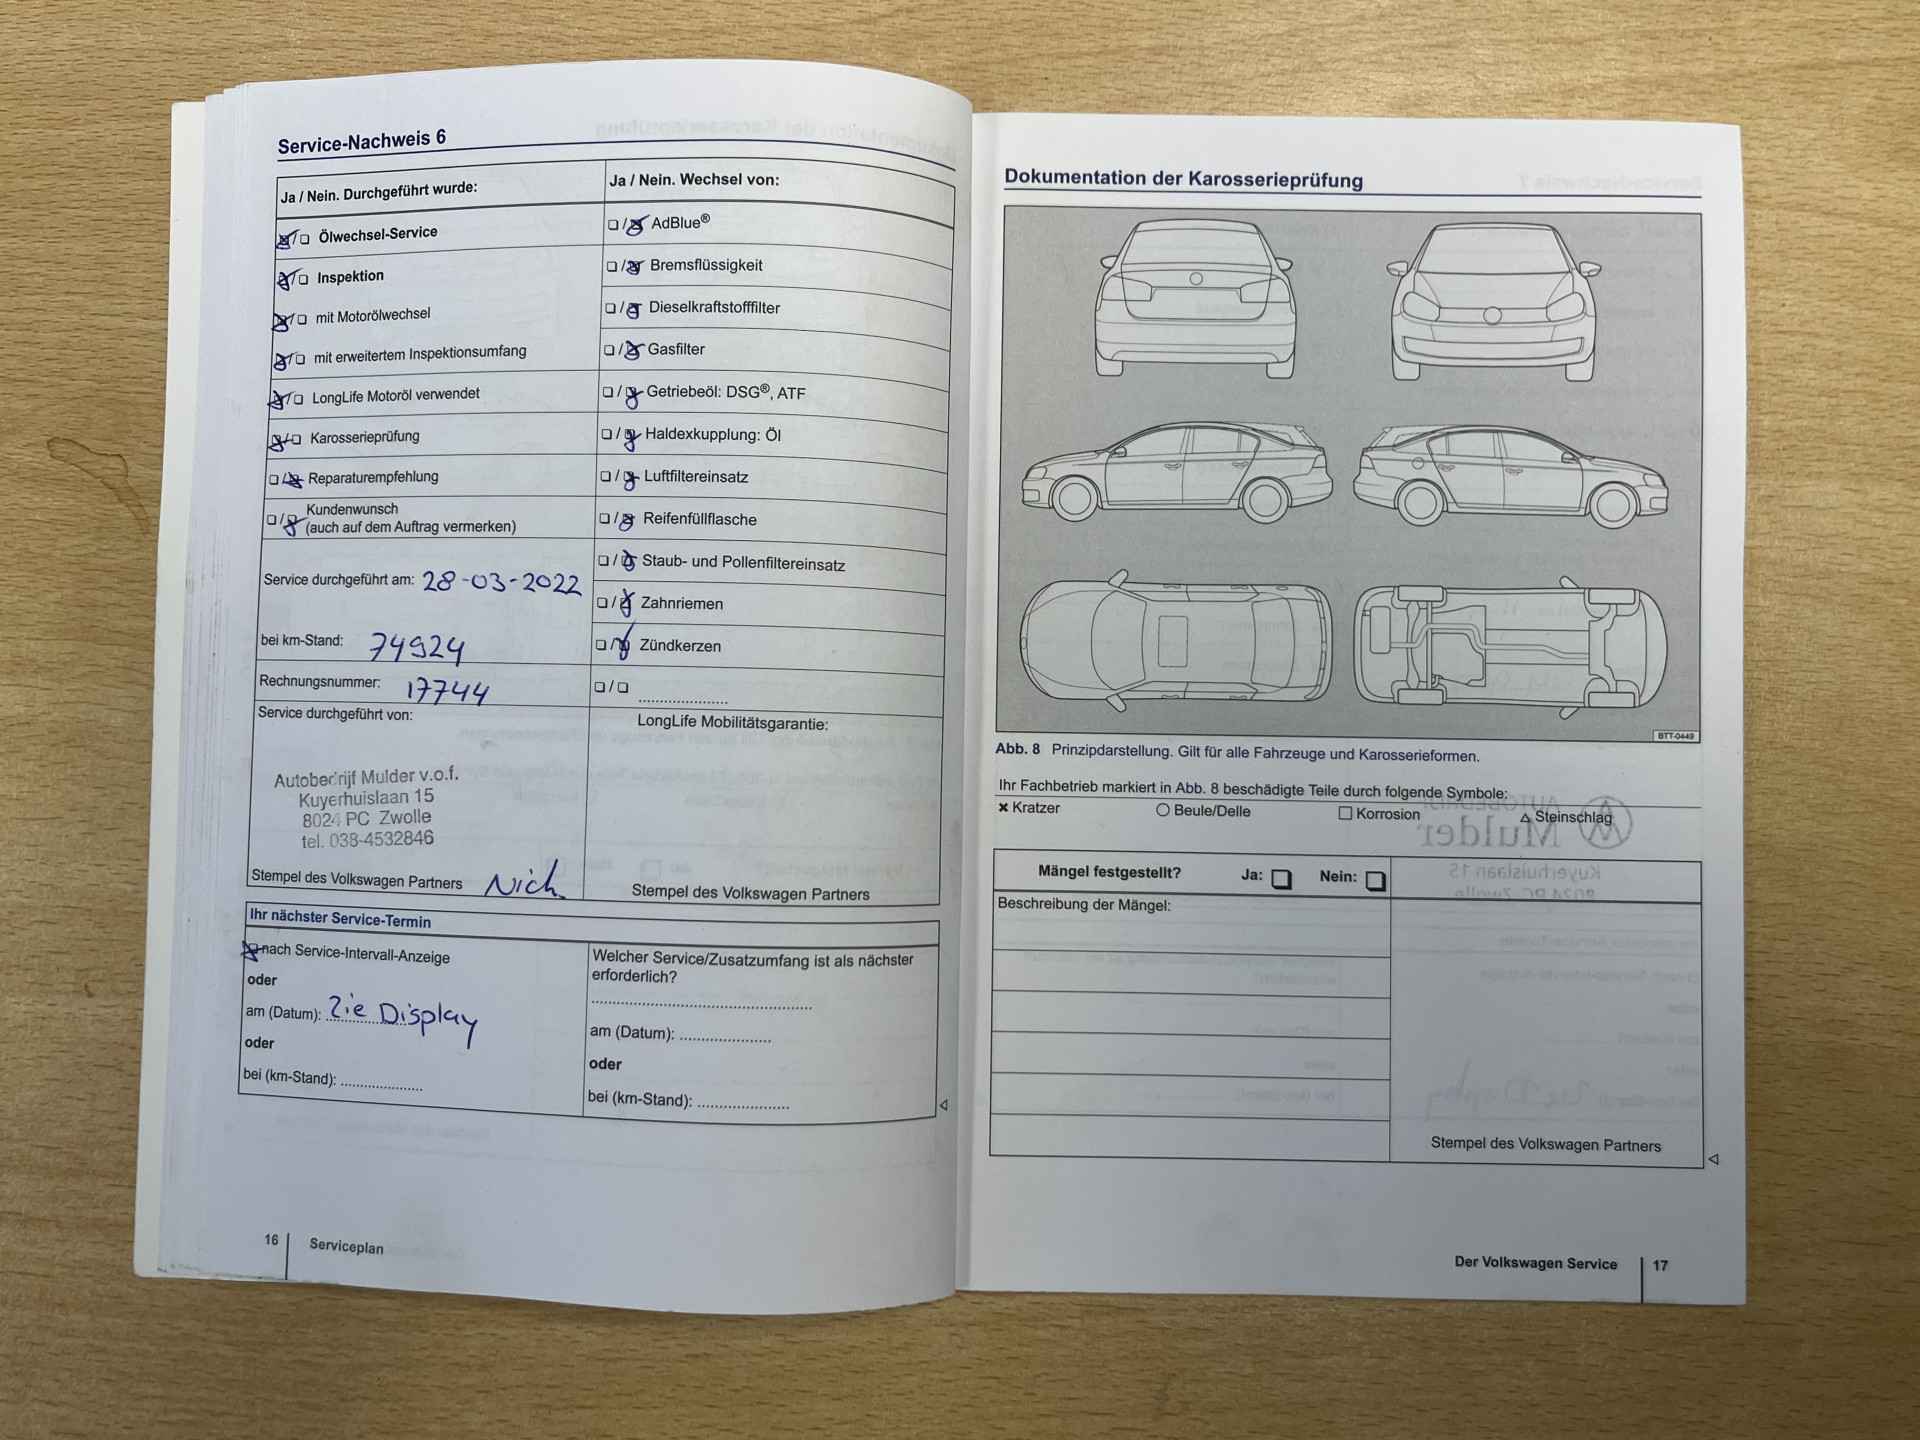 Service-Nachweis 6
Ja / Nein. Durchgeführt wurde:
Ölwechsel-Service
Inspektion
mit Motorölwechsel
mit erweitertem Inspektionsumfang
LongLife Motoröl verwendet
Karosserieprüfung
Reparaturempfehlung
Kundenwunsch
(auch auf dem Auftrag vermerken)
Service durchgeführt am: 28-03-2022
bei km-Stand: 74924
Rechnungsnummer: 17744
Service durchgeführt von:
Autobedrijf Mulder v.o.f.
Kuyerhuislaan 15
8024 PC Zwolle
tel. 038-4532846
Stempel des Volkswagen Partners Nich
Ja / Nein. Wechsel von:
AdBlue®
Bremsflüssigkeit
Dieselkraftstofffilter
Gasfilter
Getriebeöl: DSG®, ATF
Haldexkupplung: Öl
Luftfiltereinsatz
Reifenfüllflasche
Staub- und Pollenfiltereinsatz
Zahnriemen
Zündkerzen
LongLife Mobilitätsgarantie:
Stempel des Volkswagen Partners
Ihr nächster Service-Termin
nach Service-Intervall-Anzeige
oder
am (Datum): Zie Display
oder
bei (km-Stand): ....................
Welcher Service/Zusatzumfang ist als nächster
erforderlich?
am (Datum): ......................
oder
bei (km-Stand): ......................
16 Serviceplan
Dokumentation der Karosserieprüfung
BTT-0449
Abb. 8 Prinzipdarstellung. Gilt für alle Fahrzeuge und Karosserieformen.
Ihr Fachbetrieb markiert in Abb. 8 beschädigte Teile durch folgende Symbole:
Kratzer Beule/Delle Korrosion Steinschlag
Mängel festgestellt? Ja: Nein:
Beschreibung der Mängel:
Stempel des Volkswagen Partners
Der Volkswagen Service 17